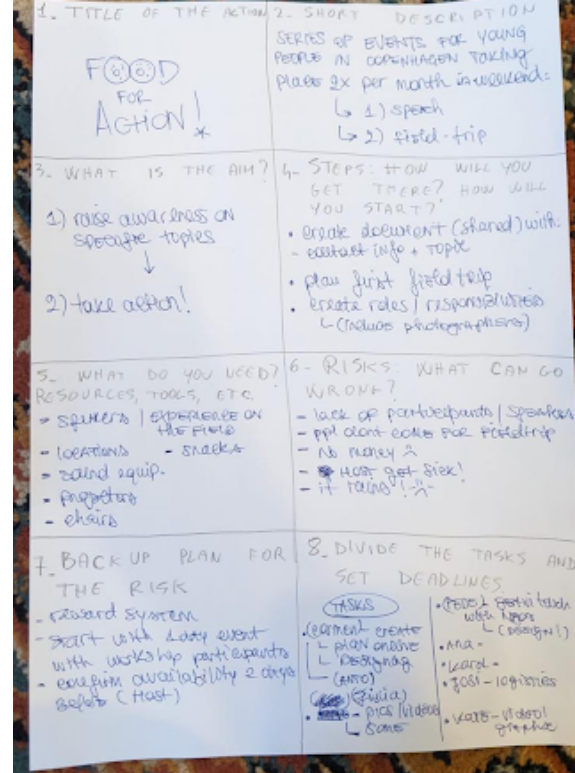 1. TITLE OF THE ACTION
FOOD
FOR
ACTION!
2. SHORT DESCRIPTION
SERIES OF EVENTS FOR YOUNG
PEOPLE IN COPENHAGEN TAKING
place 2x per month in weekend:
1) speech
2) field-trip
3. WHAT IS THE AIM?
1) raise awareness on
specific topics
2) take action!
4. STEPS: HOW WILL YOU
GET THERE? HOW WILL
YOU START?
• create document (shared) with
- contact info + topic
• plan first field trip
• create roles / responsibilities
(include photographers)
5. WHAT DO YOU NEED?
RESOURCES, TOOLS, ETC.
- speakers / EXPERIENCE ON
THE FIELD
- locations - snacks
- sound equip.
- projectors
- chairs
6. RISKS: WHAT CAN GO
WRONG?
- lack of participants / SPEAKERS
- ppl dont come FOR fieldtrip
- No money
- Host get sick!
- it rains!
7. BACK UP PLAN FOR
THE RISK
- reward system
- start with 1 day event
with workshop participants
- confirm availability 2 days
before (Host)
8. DIVIDE THE TASKS AND
SET DEADLINES.
TASKS
create
plan online
Designing
- pics / videos
some
get in touch
with
(DESIGN!)
• Ana -
• Karol -
• Josi - logistics
- video /